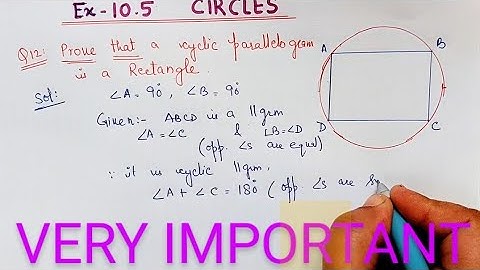 Ex-10.5 CIRCLES
Q12: Prove that a cyclic parallelogram
is a Rectangle.
Sol: ∠A = 90°, ∠B = 90°
Given:- ABCD is a ||gm
∠A = ∠C & ∠B = ∠D
(opp. ∠s are equal)
∵ it is cyclic ||gm,
∠A + ∠C = 180° ( opp ∠s are
A
B
D
C
VERY IMPORTANT